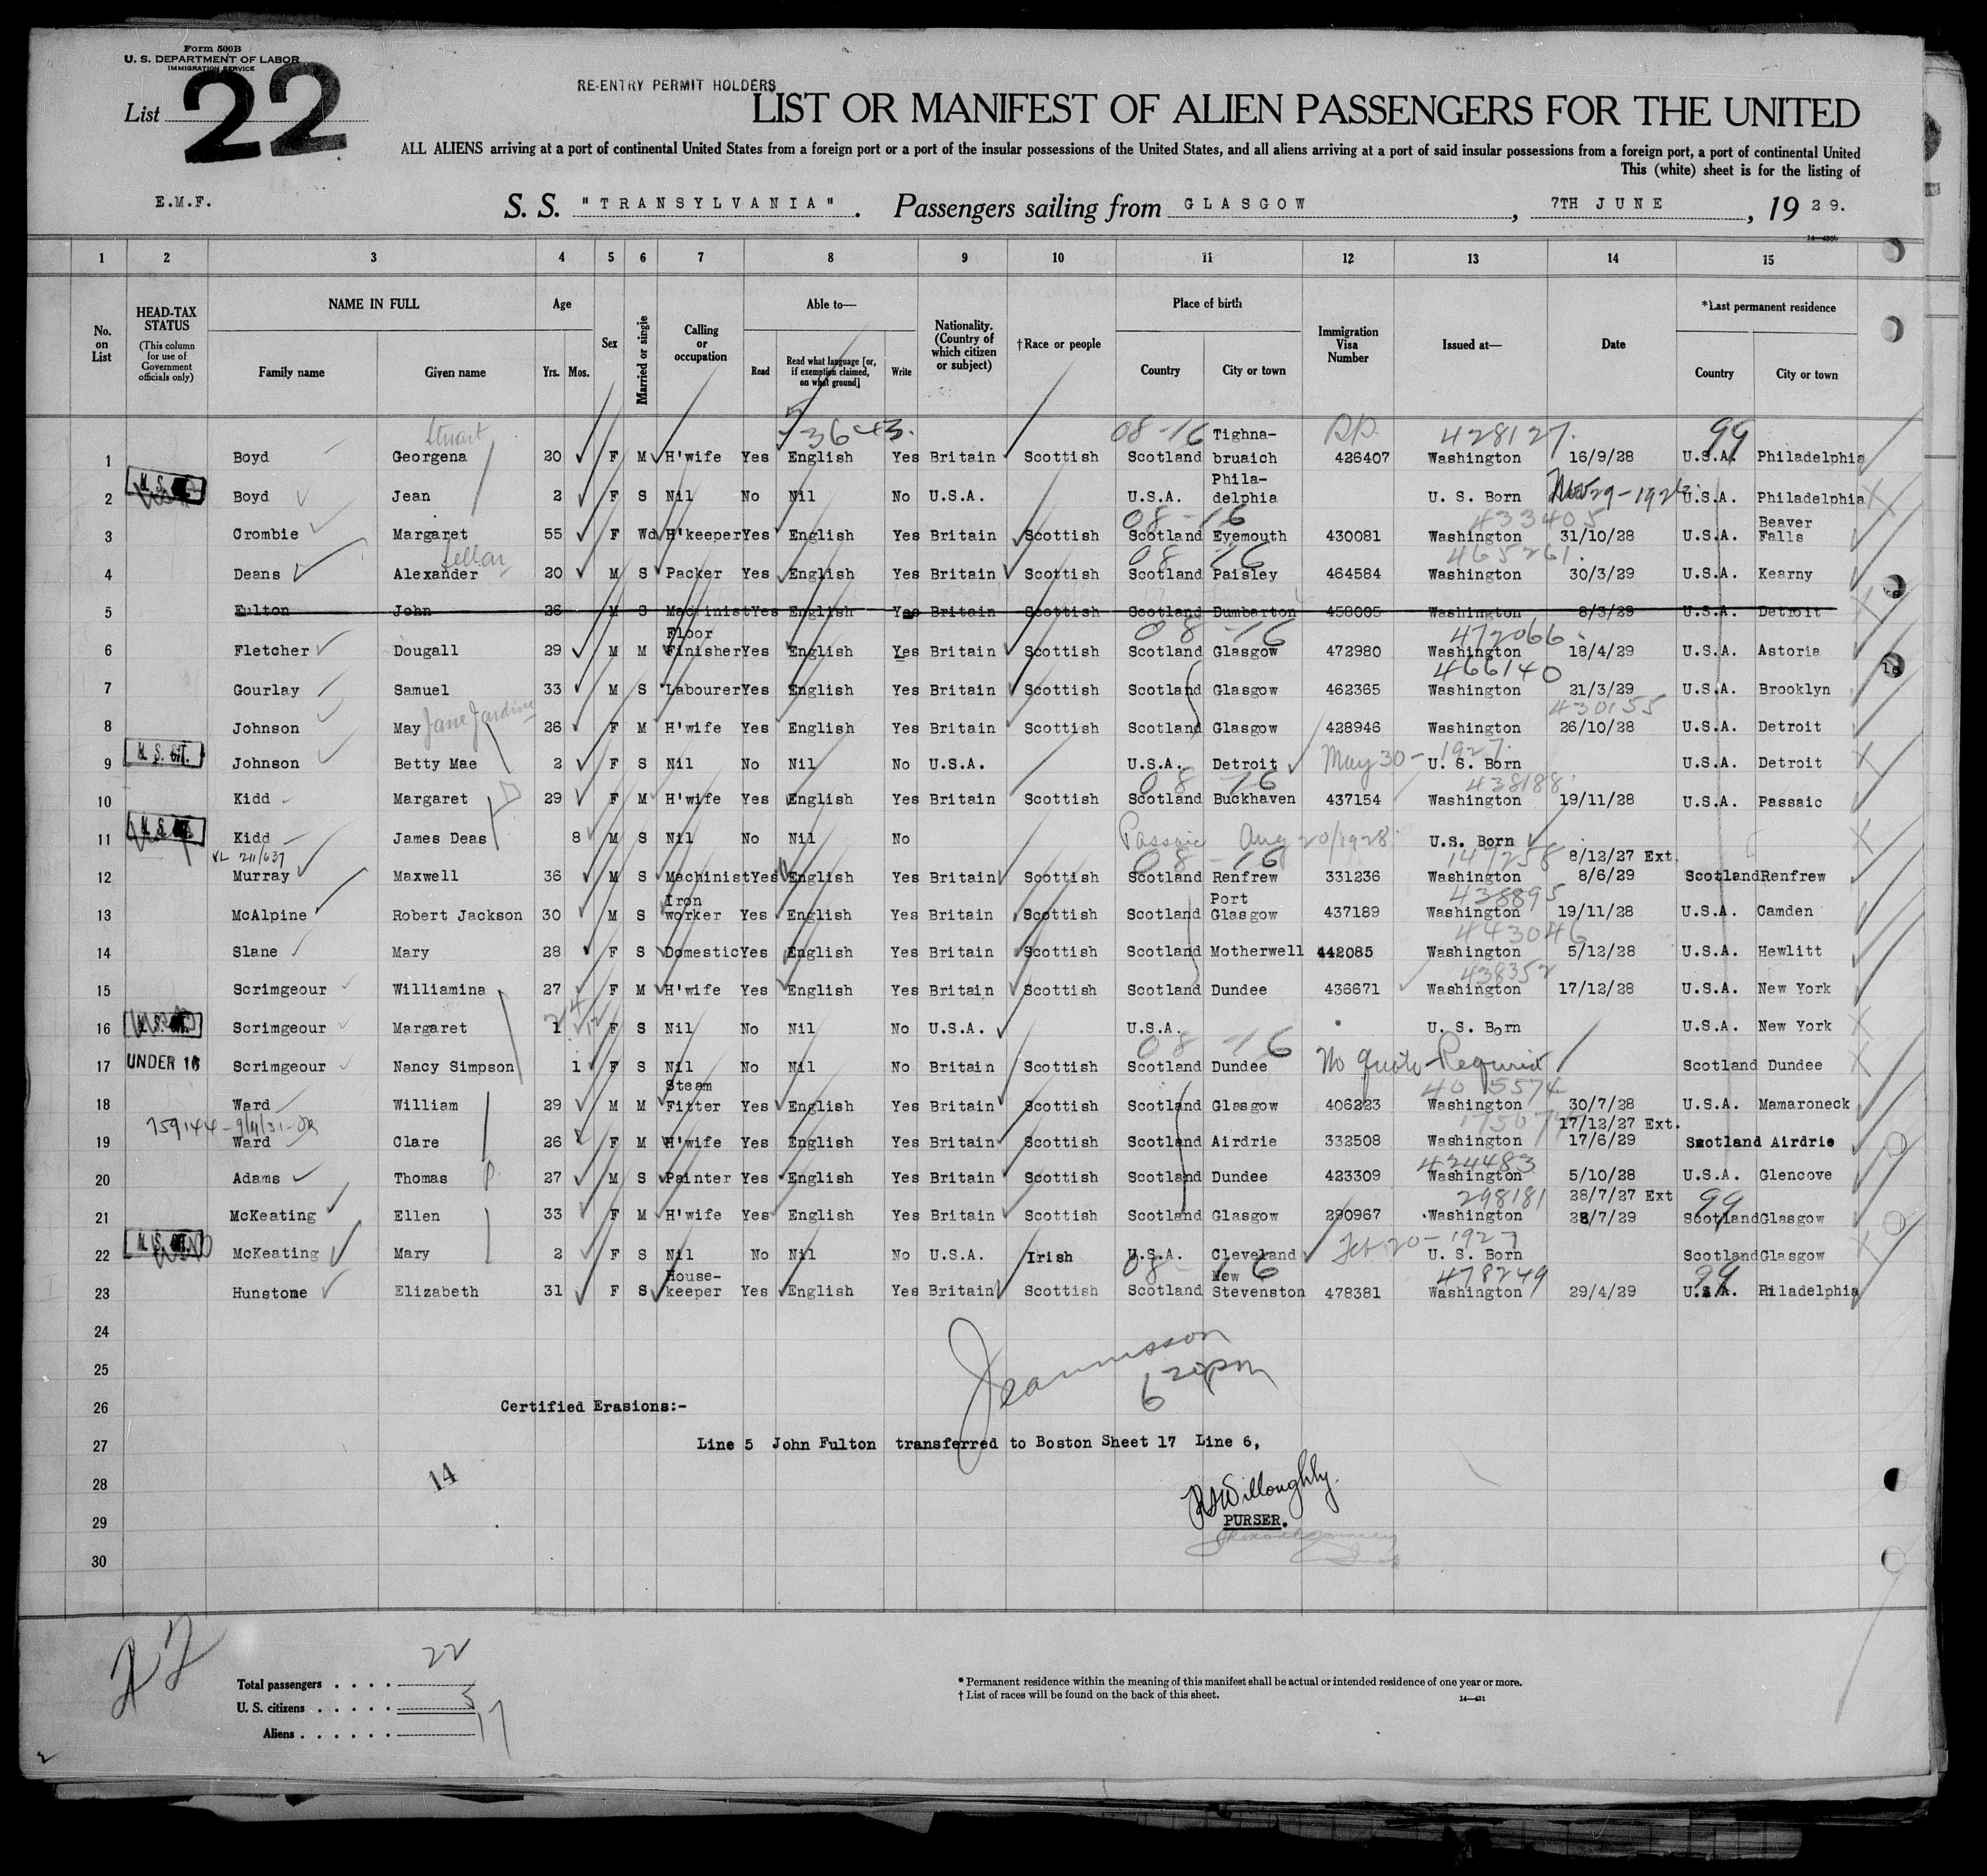 Form 500B
U. S. DEPARTMENT OF LABOR
IMMIGRATION SERVICE
List 22
RE-ENTRY PERMIT HOLDERS
LIST OR MANIFEST OF ALIEN PASSENGERS FOR THE UNITED
ALL ALIENS arriving at a port of continental United States from a foreign port or a port of the insular possessions of the United States, and all aliens arriving at a port of said insular possessions from a foreign port, a port of continental United
This (white) sheet is for the listing of
E.M.F.
S. S. "TRANSYLVANIA". Passengers sailing from GLASGOW, 7TH JUNE, 1929.
14—430b
1 2 3 4 5 6 7 8 9 10 11 12 13 14 15
No. on List
HEAD-TAX STATUS (This column for use of Government officials only)
NAME IN FULL Family name Given name
Age Yrs. Mos.
Sex
Married or single
Calling or occupation
Able to— Read Read what language [or, if exemption claimed, on what ground] Write
Nationality. (Country of which citizen or subject)
†Race or people
Place of birth Country City or town
Immigration Visa Number
Issued at—
Date
*Last permanent residence Country City or town
Stuart 3643. 08-16 428127. 99
1 Boyd Georgena 20 F M H'wife Yes English Yes Britain Scottish Scotland Tighna-bruaich 426407 Washington 16/9/28 U.S.A. Philadelphia
2 Boyd Jean 2 F S Nil No Nil No U.S.A. U.S.A. Phila-delphia U. S. Born Nov 29-192 U.S.A. Philadelphia
08-16 433405
3 Crombie Margaret 55 F Wd H'keeper Yes English Yes Britain Scottish Scotland Eyemouth 430081 Washington 31/10/28 U.S.A. Beaver Falls
Sellar 08 16 465261.
4 Deans Alexander 20 M S Packer Yes English Yes Britain Scottish Scotland Paisley 464584 Washington 30/3/29 U.S.A. Kearny
5 Fulton John 26 M S Machinist Yes English Yes Britain Scottish Scotland Dumbarton 458005 Washington 8/3/29 U.S.A. Detroit
08-16 472066
6 Fletcher Dougall 29 M M Floor Finisher Yes English Yes Britain Scottish Scotland Glasgow 472980 Washington 18/4/29 U.S.A. Astoria
466140
7 Gourlay Samuel 33 M S Labourer Yes English Yes Britain Scottish Scotland Glasgow 462365 Washington 21/3/29 U.S.A. Brooklyn
430155
8 Johnson May Jane Jardine 26 F M H'wife Yes English Yes Britain Scottish Scotland Glasgow 428946 Washington 26/10/28 U.S.A. Detroit
9 Johnson Betty Mae 2 F S Nil No Nil No U.S.A. U.S.A. Detroit May 30-1927. U. S. Born U.S.A. Detroit
08 16 438188
10 Kidd Margaret 29 F M H'wife Yes English Yes Britain Scottish Scotland Buckhaven 437154 Washington 19/11/28 U.S.A. Passaic
11 Kidd James Deas 8 M S Nil No Nil No Passaic Aug 20/1928 U.S. Born
VL 211/637 08-16 147258 8/12/27 Ext.
12 Murray Maxwell 36 M S Machinist Yes English Yes Britain Scottish Scotland Renfrew 331236 Washington 8/6/29 Scotland Renfrew
438895
13 McAlpine Robert Jackson 30 M S Iron worker Yes English Yes Britain Scottish Scotland Port Glasgow 437189 Washington 19/11/28 U.S.A. Camden
443046
14 Slane Mary 28 F S Domestic Yes English Yes Britain Scottish Scotland Motherwell 442085 Washington 5/12/28 U.S.A. Hewlitt
438352
15 Scrimgeour Williamina 27 F M H'wife Yes English Yes Britain Scottish Scotland Dundee 436671 Washington 17/12/28 U.S.A. New York
16 Scrimgeour Margaret 1 F S Nil No Nil No U.S.A. U.S.A. U. S. Born U.S.A. New York
08-16
17 UNDER 16 Scrimgeour Nancy Simpson 1 F S Nil No Nil No Britain Scottish Scotland Dundee No quota Required Scotland Dundee
405574
18 Ward William 29 M M Steam Fitter Yes English Yes Britain Scottish Scotland Glasgow 406223 Washington 30/7/28 U.S.A. Mamaroneck
759144-9/4/31- 17/12/27 Ext.
19 Ward Clare 26 F M H'wife Yes English Yes Britain Scottish Scotland Airdrie 332508 Washington 17/6/29 Scotland Airdrie
424483
20 Adams Thomas 27 M S Painter Yes English Yes Britain Scottish Scotland Dundee 423309 Washington 5/10/28 U.S.A. Glencove
298181 28/7/27 Ext 99
21 McKeating Ellen 33 F M H'wife Yes English Yes Britain Scottish Scotland Glasgow 290967 Washington 28/7/29 Scotland Glasgow
22 McKeating Mary 2 F S Nil No Nil No U.S.A. Irish U.S.A. Cleveland Feb 20-1927 U. S. Born Scotland Glasgow
08-16 478249 99
23 Hunstone Elizabeth 31 F S House-keeper Yes English Yes Britain Scottish Scotland New Stevenston 478381 Washington 29/4/29 U.S.A. Philadelphia
24
25
6 20 pm
26 Certified Erasions:-
27 Line 5 John Fulton transferred to Boston Sheet 17 Line 6,
28 14
Willoughby.
29 PURSER.
30
22
Total passengers . . . . 22
U. S. citizens . . . . . 5
Aliens . . . . . . 17
* Permanent residence within the meaning of this manifest shall be actual or intended residence of one year or more.
† List of races will be found on the back of this sheet.
14—431